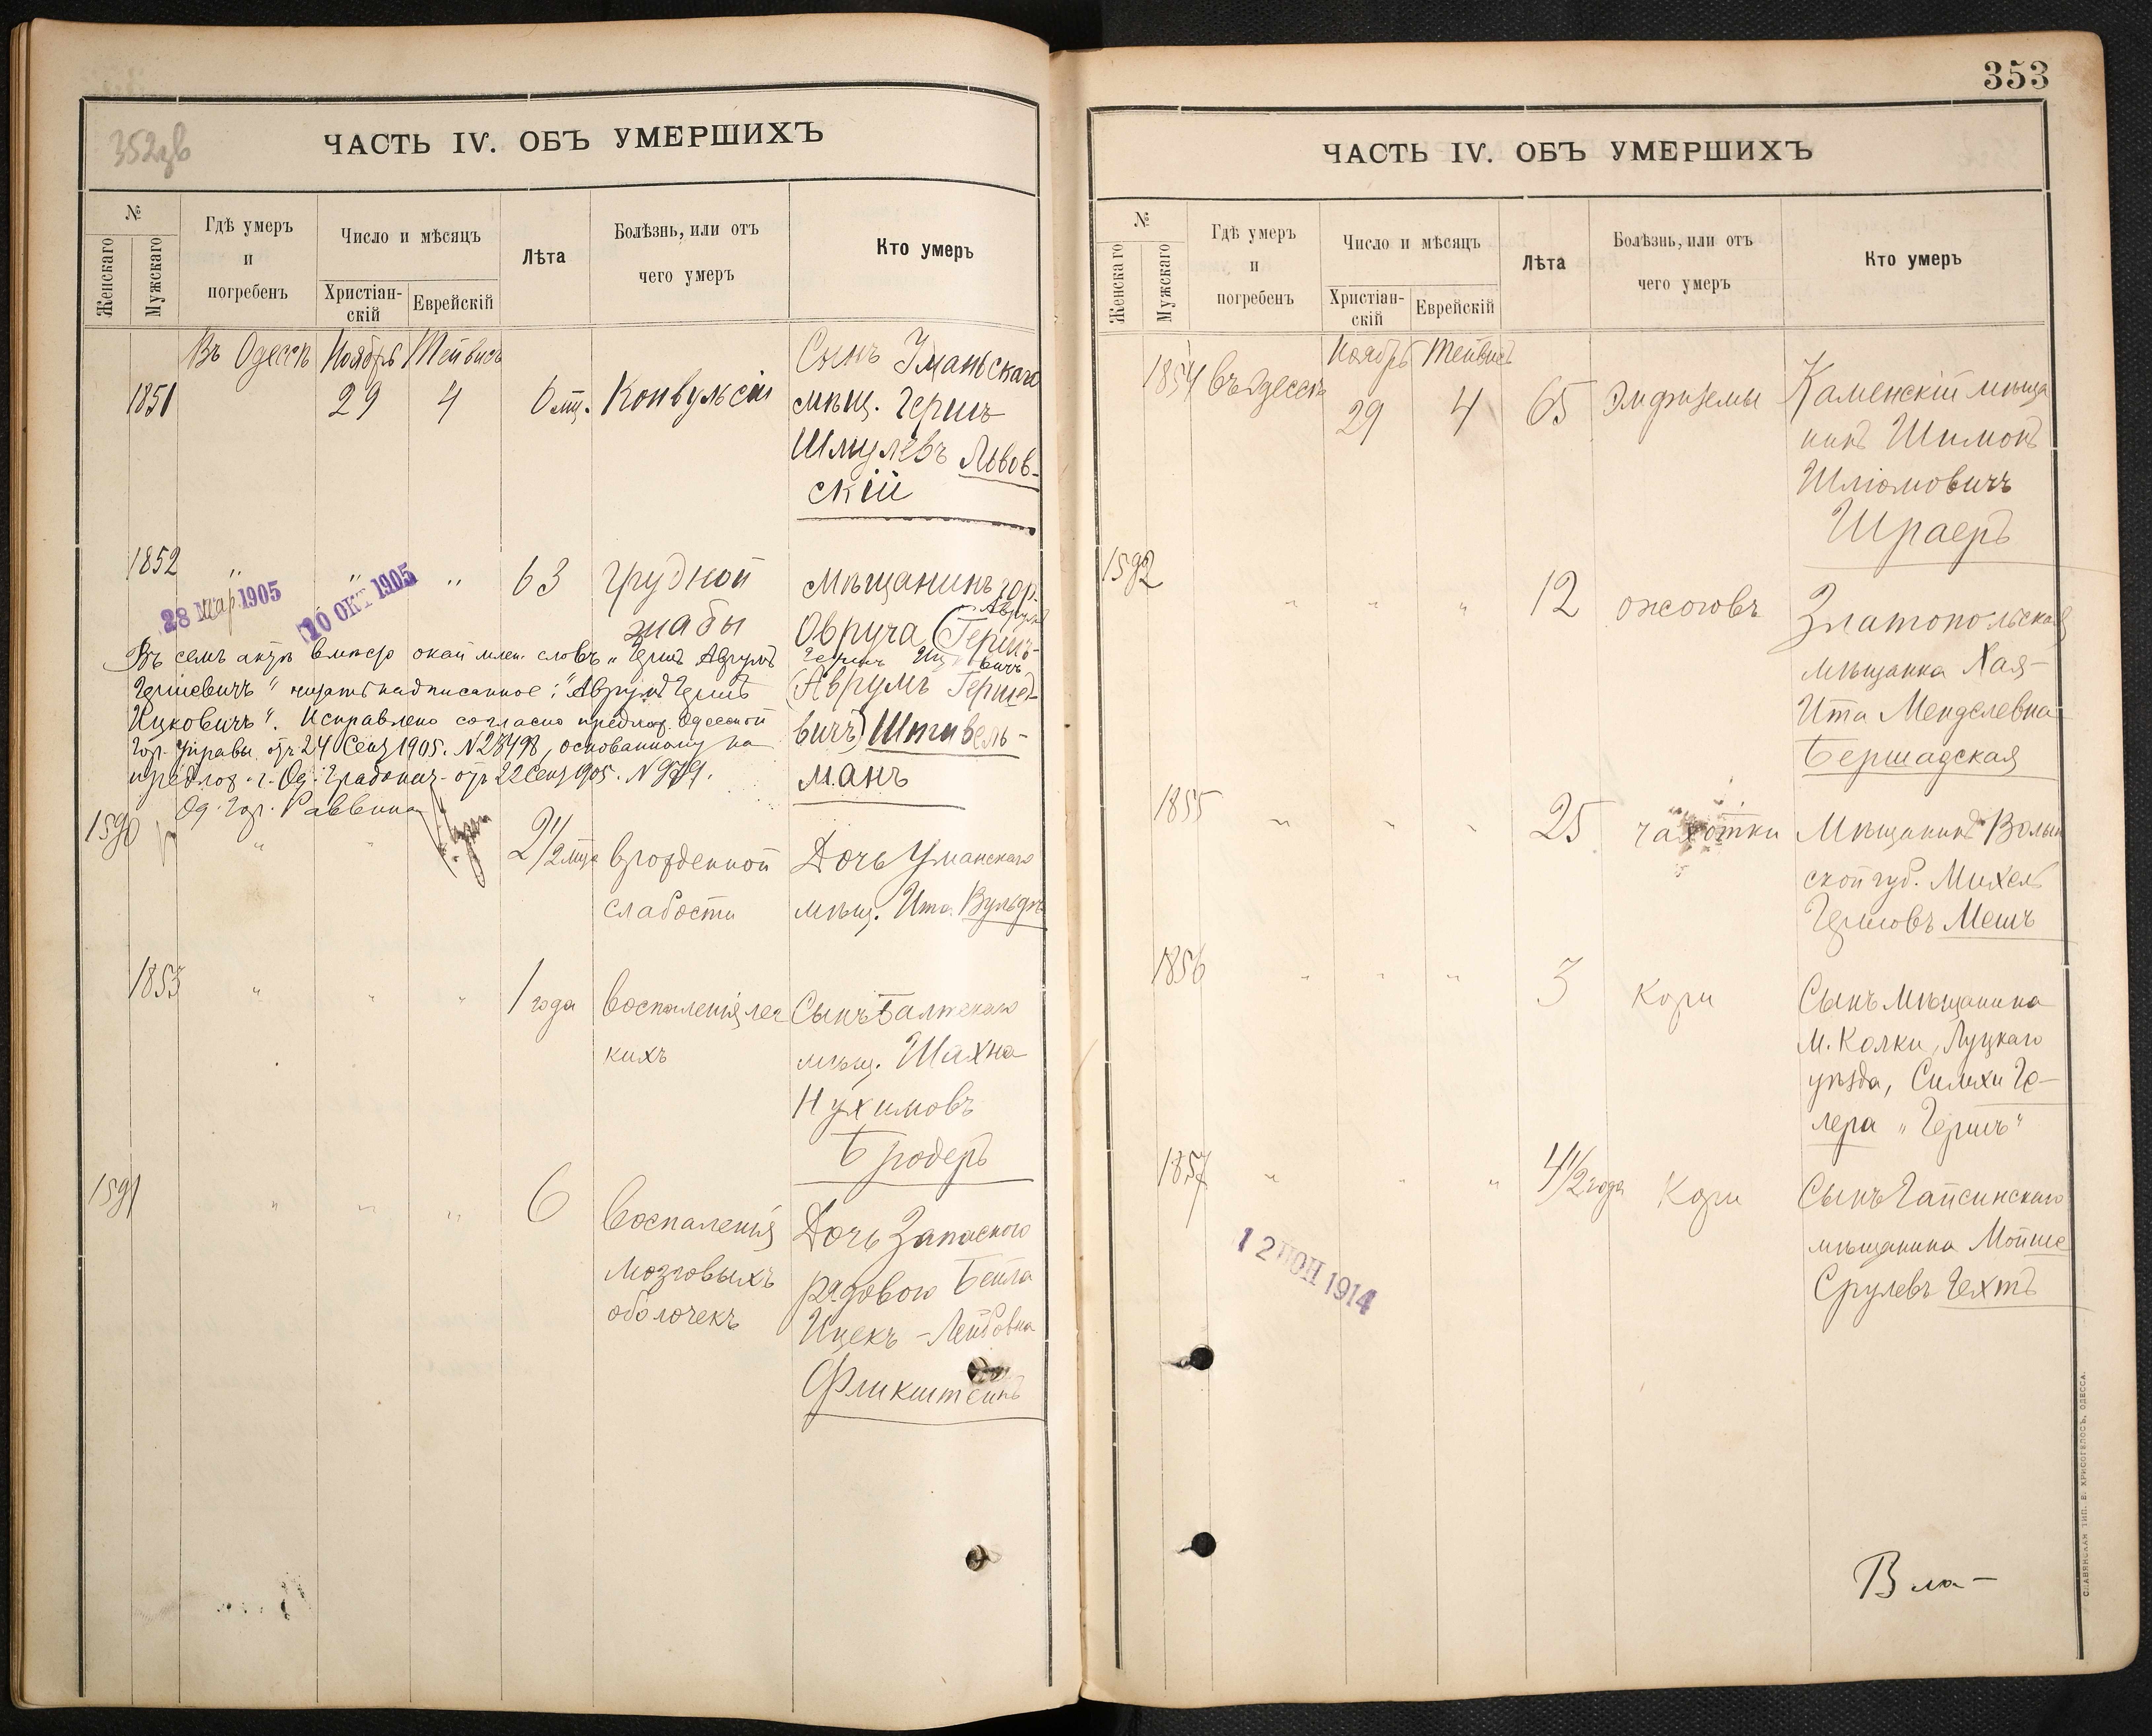 ЧАСТЬ IV. ОБЪ УМЕРШИХЪ
№
Женскаго
Мужскаго
Гдѣ умеръ
и
погребенъ
Число и мѣсяцъ
Христіан-
скій
Еврейскій
Лѣта
Болѣзнь, или отъ
чего умеръ
Кто умеръ
Въ Одессѣ Ноябрь Тейвисъ
1851 29 4 6 мц. Конвульсіи
Сынъ Уманьскаго
мѣщ. Гершъ
Шмулевъ Львов-
скій
1852 " " " 63 грудной
жабы
28 мар 1905
10 ОКТ 1905
Мѣщанинъ гор.
Аврумъ
Овруча (Гершъ-
Гершъ Ицковичъ
(Аврумъ Герше-
вичъ) Штивель-
манъ
Въ семъ актѣ вмѣсто словъ „Гершъ Аврумъ
Гершевичъ" надписанное: "Аврумъ Гершъ
Ицковичъ". Исправлено согласно предлож. Одесской
Гор. Управы отъ 24 Сент 1905. N 28498, основанному на
предлож. г. Од. Градонач. отъ 22 Сент 1905. N
Од. Гор. Раввинъ
1590 " " 2 1/2 мца врожденной
слабости
Дочь Уманскаго
мѣщ. Ита Вульфъ
1853 " " " 1 года воспаленія лег
кихъ
Сынъ Балтскаго
мѣщ. Шахна
Нухимовъ
Бродеръ
1591 " " " 6 Воспаленія
мозговыхъ
оболочекъ
Дочь Запаснаго
рядового Бейла
Ицекъ-Лейбовна
Фликштейнъ
353
ЧАСТЬ IV. ОБЪ УМЕРШИХЪ
№
Женскаго
Мужскаго
Гдѣ умеръ
и
погребенъ
Число и мѣсяцъ
Христіан-
скій
Еврейскій
Лѣта
Болѣзнь, или отъ
чего умеръ
Кто умеръ
Ноябрь Тейвисъ
1854 въ Одессѣ 29 4 65 Эмфиземы
Каменскій мѣща
нинъ Шимонъ
Шліомовичъ
Шраеръ
1592 " " " 12 ожоговъ
Златопольская
мѣщанка Хая-
Ита Менделевна
Бершадская
1855 " " " 25 чахотки
Мѣщанинъ Волын
ской губ. Михель
Гершовъ Мешъ
1856 " " " 3 Кори
Сынъ мѣщанина
м. Колки, Луцкаго
уѣзда, Симхи Ге-
лера „Гершъ"
1857 " " " 4 1/2 года Кори
Сынъ Гайсинскаго
мѣщанина Мойше
Срулевъ Гехтъ
1914
Вла-
СЛАВЯНСКАЯ ТИП. Е. ХРИСОГЕЛОСЪ, ОДЕССА.